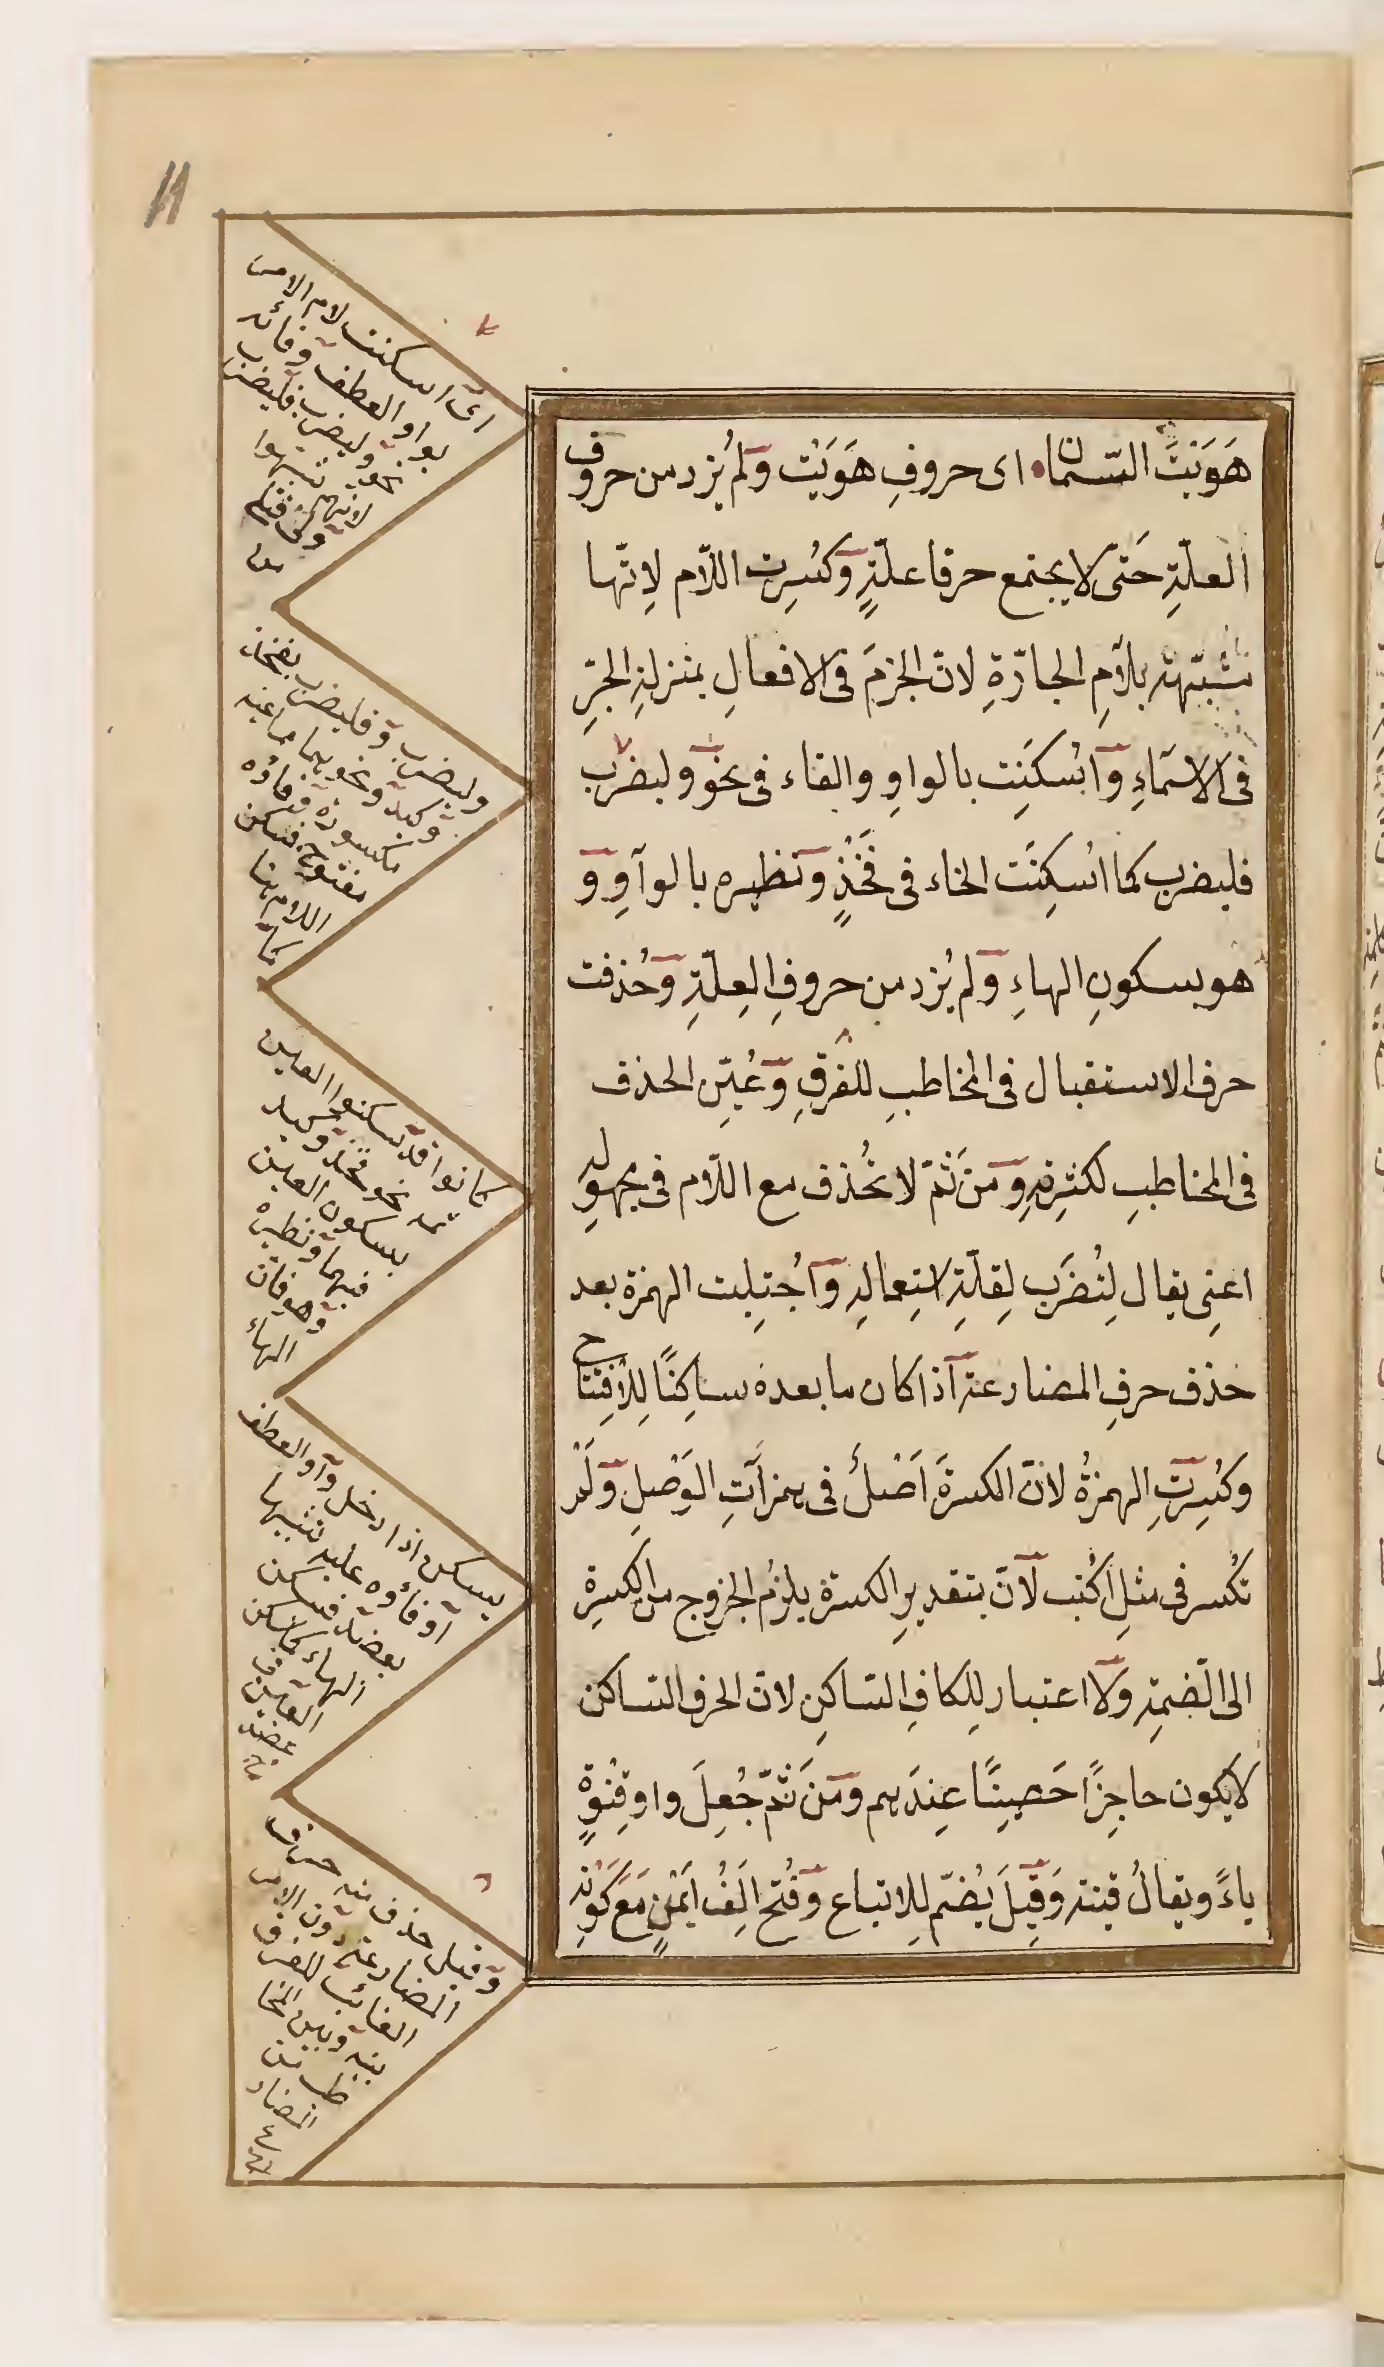 هَوَيْتُ السِّمَانَا اى حروفِ هَوَيْت وَلم يُزد من حروف
العلّةِ حَتىّ لا يجتمع حرفا علّةٍ وَكُسِرت اللاّم لاِنّها
مشبّهة بلاَمِ الجارّةِ لانّ الجزمَ فى الافعالِ بمنزلةِ الجرِّ
فى الاسمَاءِ وَاُسكِنَت بالواوِ والفاء فى نحو وليضرب
فليضرب كما اُسكِنَت الخاء فى فَخْذٍ وَنظيره بالواوِ وَ
هو بسكونِ الهاءِ وَلم يُزد من حروفِ العِلّةِ وَحُذفت
حرف الاستقبال فى المخاطبِ للفرقِ وَعُيّن الحذف
فى المخاطبِ لكثرتهِ وَمنَ ثَمّ لا تُحذف مع اللاّم فى مجهولهِ
اعنِى يقال لِتُضرَب لِقلّةِ استِعمالهِ وَاُجتلِبت الهمزة بعد
حذف حرفِ المضارعة اذا كان ما بعده ساكِنًا لِلاْفِتتاح
وكُسِرَتِ الهمزةُ لانّ الكسرةَ اَصْلُ فى همزاَتِ الوَصْلِ وَلَمْ
تُكسر فى مثلِ اُكْتب لاَنّ بتقديرِ الكسرة يلزمُ الخروج من الكسرةِ
الى الضّمةِ وَلاَ اعتبار لِلكافِ السّاكِنِ لانّ الحرف السّاكن
لا يكون حاجِزًا حَصِينًا عِندَهم وَمَنْ ثَمّ جُعِلَ واو قِنْوَةٍ
ياءً ويقالُ قنية وَقِيلَ يُضمّ لِلاتباع وَفُتح اَلِفُ اَيْمُنٍ مَعَ كَوْنهِ
اى اسكنت لام الامر
بواو العطف وفائه
نحو وليضرب فليضرب
لانهم شبّهوا
وليضرب وفليضرب بفخذ
وكبد ونحوهما ما عينه
مكسورة وفاؤه
مفتوح فسكن
اللام هنا
كما
كانوا قد سكنوا العين
نحو فخذ وكبد
بسكون العين
فيهما ونظيره
وهو فانّ
الهاء
يسكن اذا دخل واو العطف
او فاؤه عليه تشبيها
بعضد فسكن
الهاء كما سكن
العين فى
عضد
وقيل حذف منه حرف
المضارعة دون الامر
الغائب للفرق
بينه وبين المخا
طب من
المضار
ع